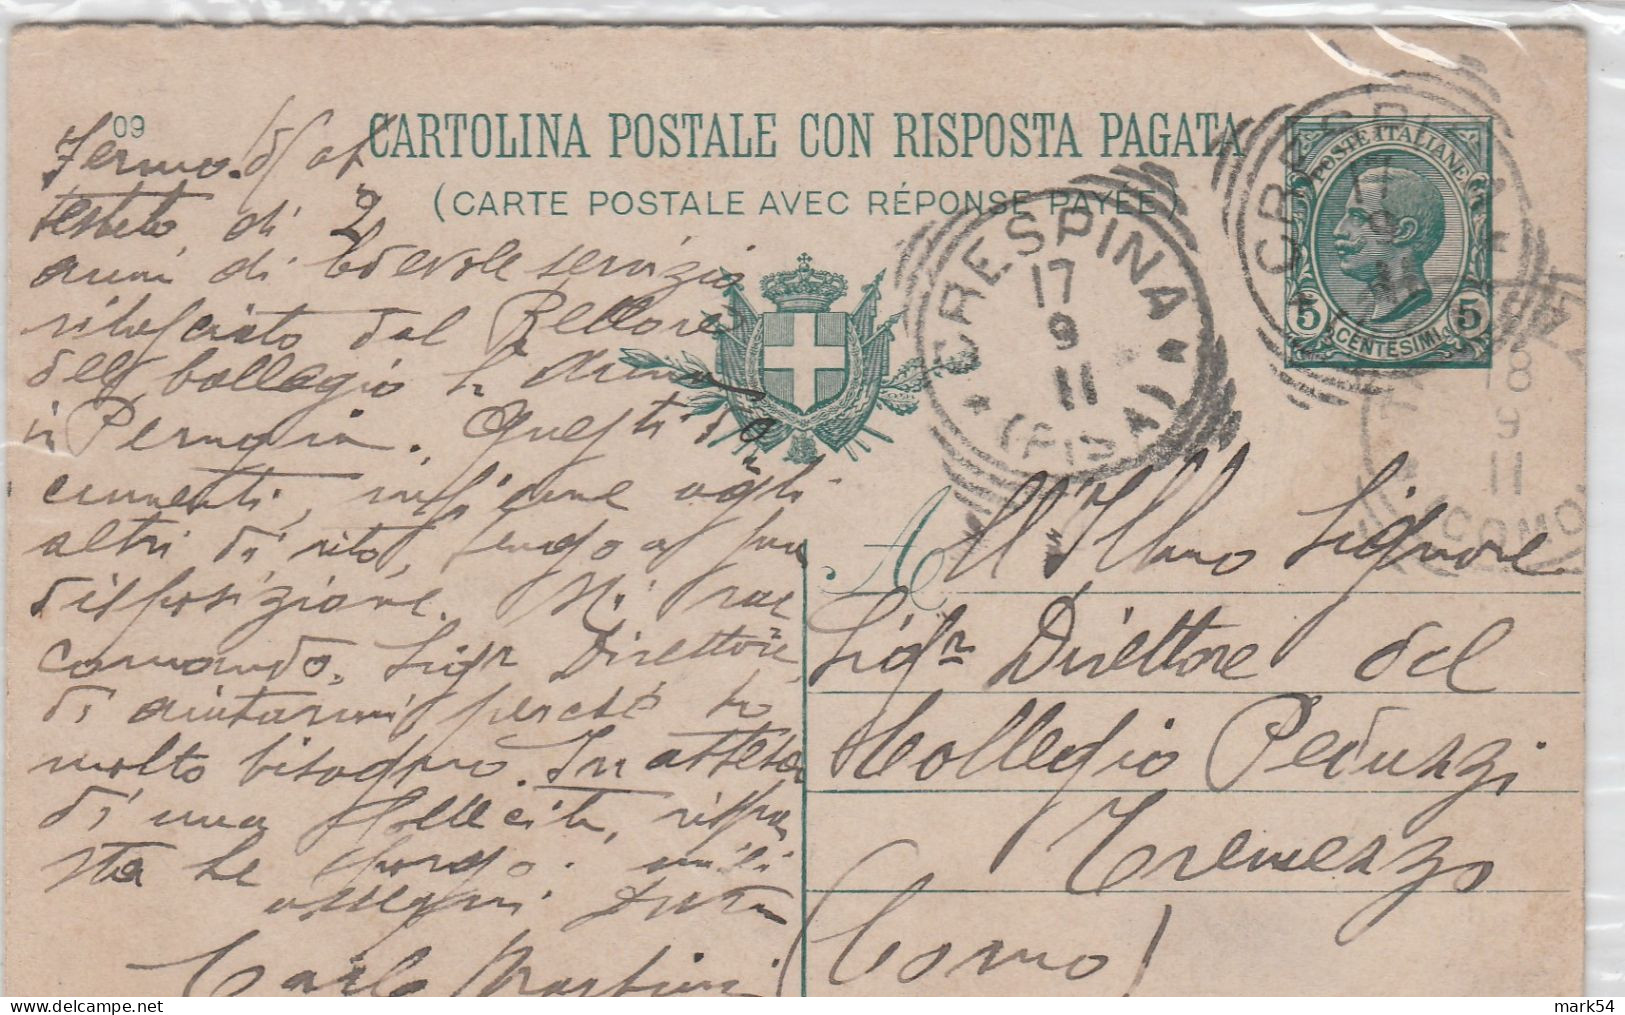 09
CARTOLINA POSTALE CON RISPOSTA PAGATA
(CARTE POSTALE AVEC RÉPONSE PAYÉE)
POSTE ITALIANE
5 CENTESIMI 5
CRESPINA
17
9
11
(PISA)
CRESPINA
17
9
11
18
9
11
(COMO)
Fermo
di 2
anni di lodevole servizio
rilasciato dal Rettore
dell collegio
in Perugia. Questi do
cumenti, insieme agli
altri di rito, tengo a sua
disposizione. Mi rac
comando, Sigr Direttore,
di aiutarmi perchè ho
molto bisogno. In attesa
di una sollecita rispo
sta Le porgo umili
ossequi
Carlo Martini
A
All'Illmo Signore
Sigr Direttore del
Collegio Peduzzi
Tremezzo
(Como)
mark54